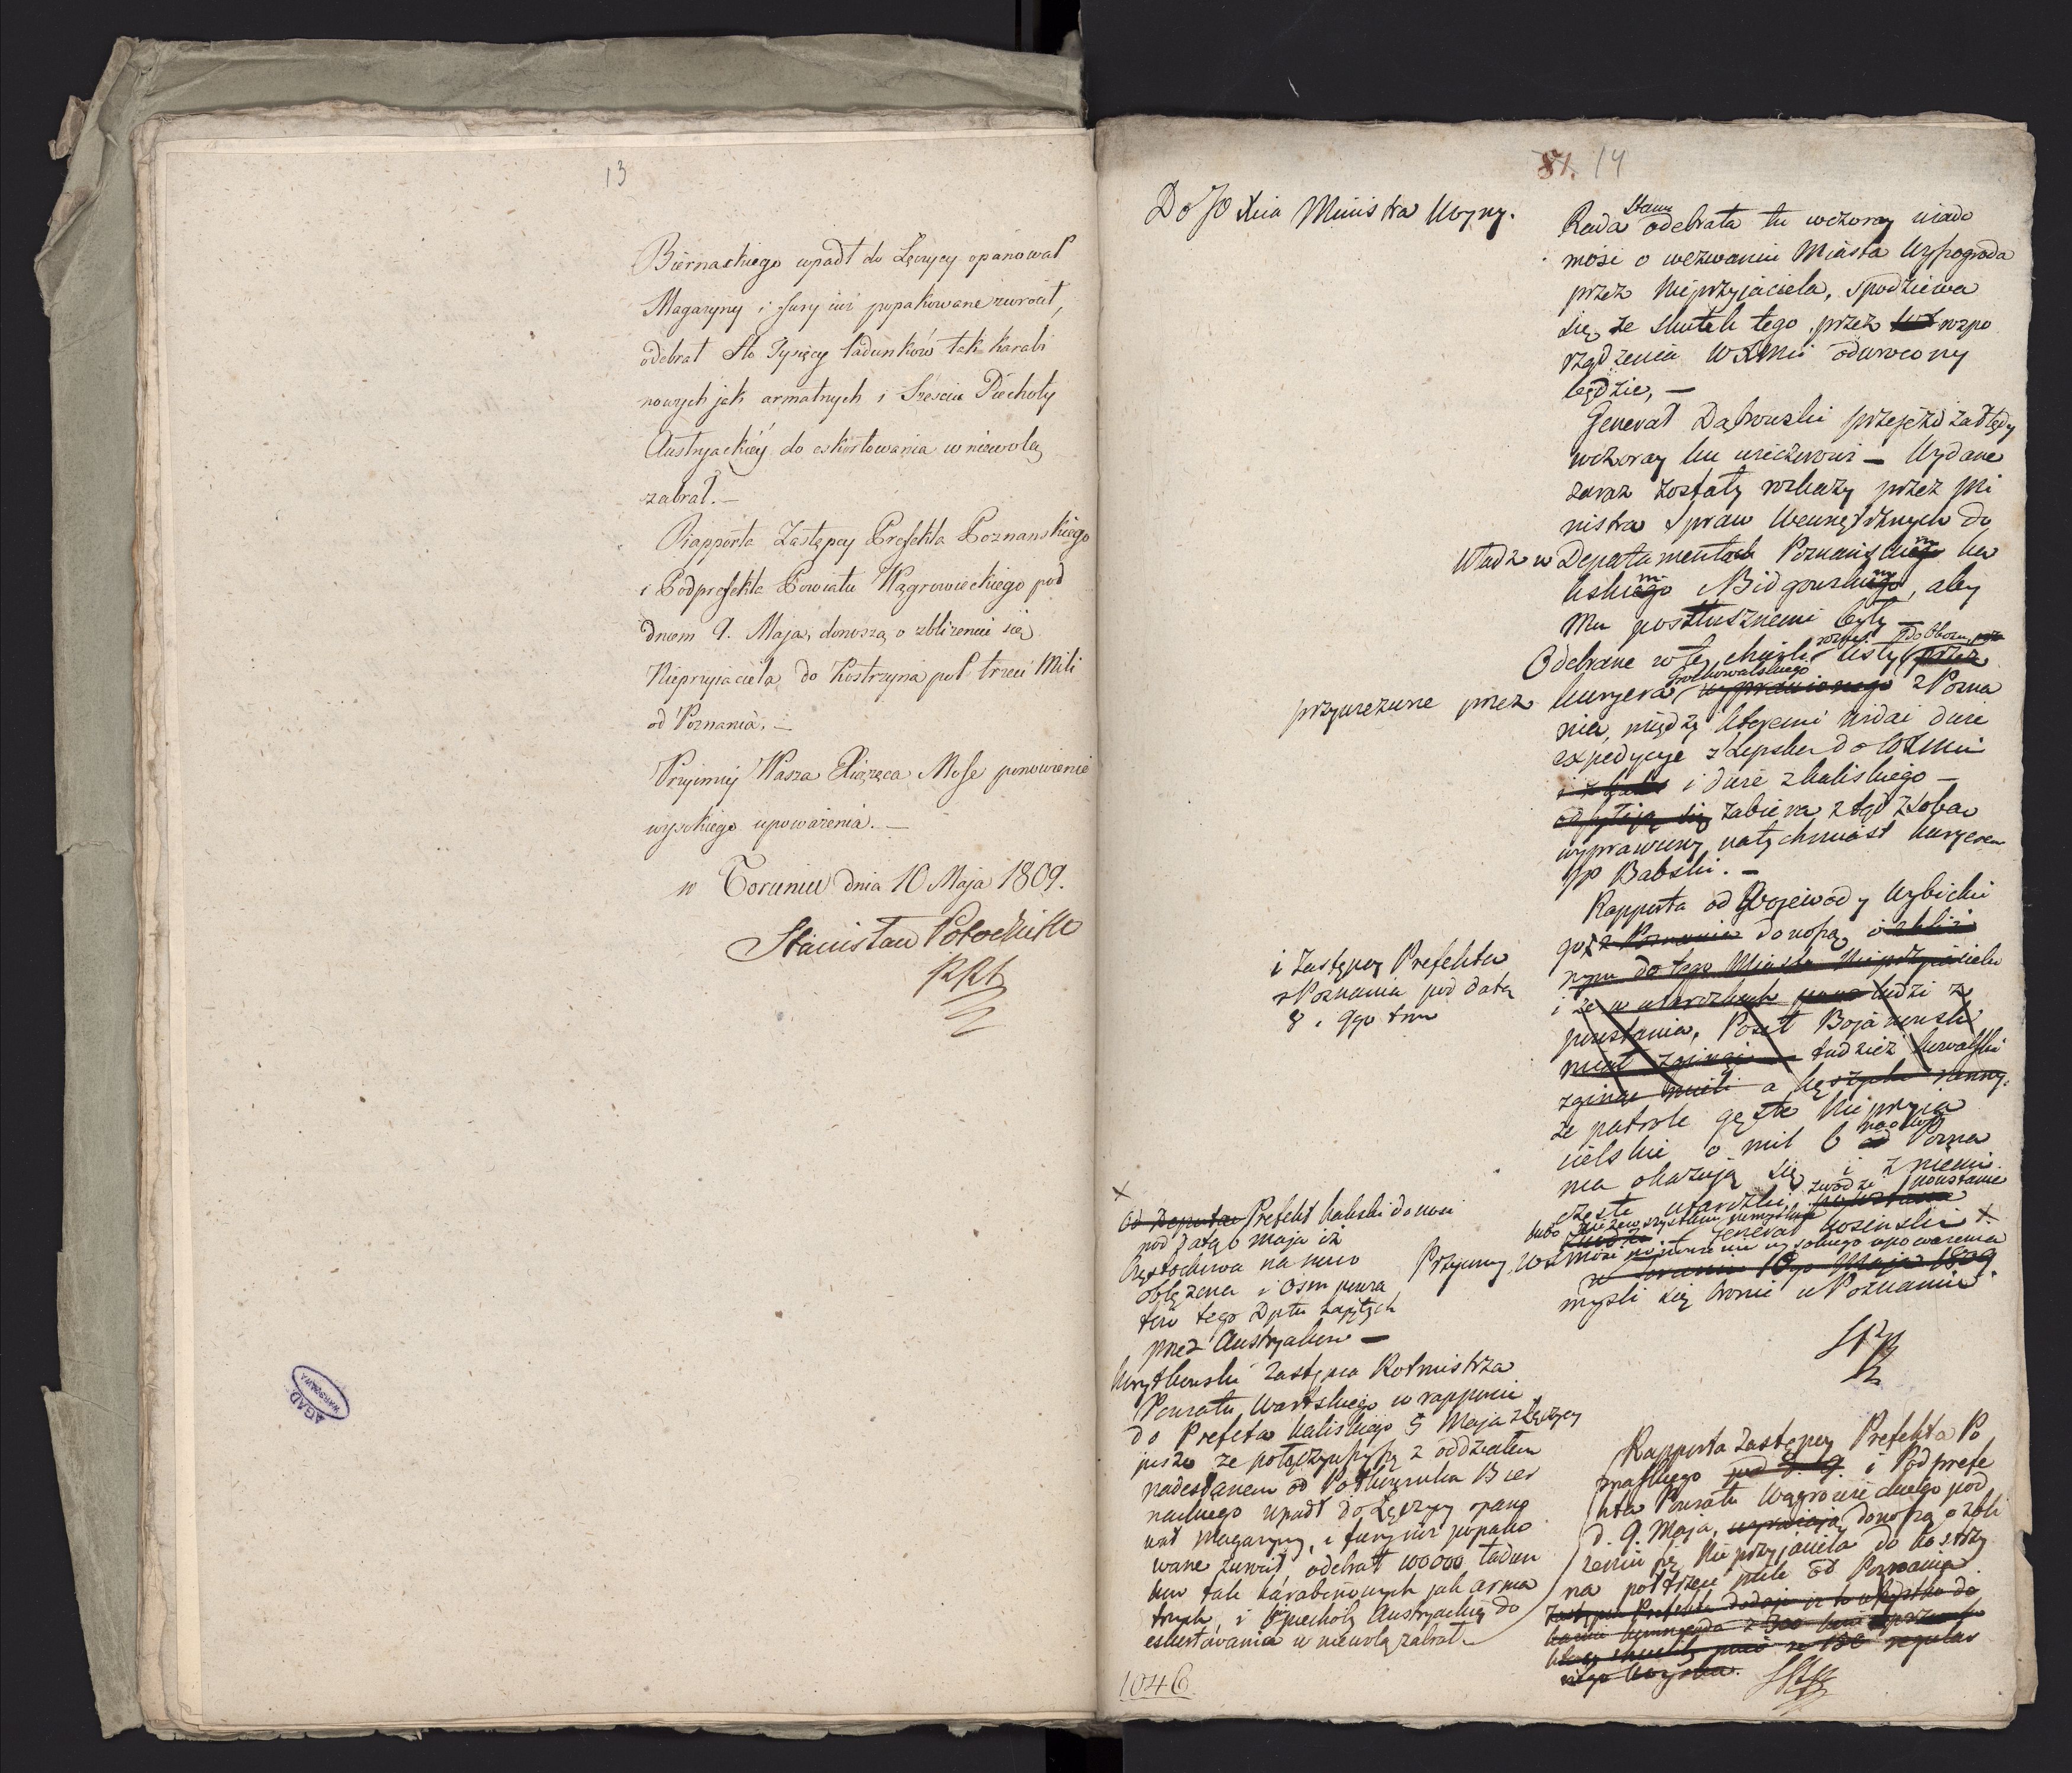 13
Biernackiego wpadł do Łęczycy opanował
Magazyny i fury iuż popakowane zwrócił,
odebrał Sto Tysięcy ładunków tak karabi
nowych jak armatnych i Sześciu Piechoty
Austryackiey do eskortowania w niewolą
zabrał. —
Rapporta Zastępcy Prefekta Poznanskiego
i Podprefekta Powiatu Wągrowieckiego pod
dniem 9. Maja, donoszą o zbliżeniu się
Nieprzyiaciela do Kostrzyna pół trzeci Mili
od Poznania. —
Przyimiy Wasza Xiążęca Mość ponowienie
wysokiego upoważenia. —
w Toruniu dnia 10 Maja 1809.
Stanisław Potocki
AGAD
WARSZAWA
81. 14
Do JO Xcia Ministra Woyny.
Rada Stanu odebrała tu wczoray wiado
mość o wezwaniu Miasta Wyszogroda
przez Nieprzyjaciela, spodziewa
się, że skutek tego przez rozpo
rządzenia WXMci odwrocony
będzie, —
Generał Dąbrowski przejeżdżał tędy
wczoray ku wieczorowi — Wydane
zaraz zostały rozkazy przez Mi
nistra Spraw Wewnętrznych do
Władz w Departamentach Poznańskim Ka
liskim Bidgowskim, aby
Mu posłusznemi były —
Odebrane w tej chwili listy do Obozu przez
przywiezione przez kuryera wyprawionego z Pozna
nia, między któremi widać dwie
expedycye z Lipska do WXMci
i dwie z Kaliskiego —
odsyłają się zabiera ztąd z sobą
wyprawiony natychmiast kuryerem
JP Babski. —
Rapporta od Wojewody Wybickie
go z Poznania donoszą, o zbliże
i Zastępcy Prefekta
z Poznania pod datą
8. 9go tm
niu do tego Miasta Nieprzyjaciela
i że w utarczkach ludzi z
powstania,
zginąć mieli a
że patrole gęste Nieprzyja
cielskie o mil 6 od Pozna
nia okazują się, i z niemi
częste utarczki zwodzi powstanie
Generał Kosinski X
Przyimiy WXMość ponowienie wysokiego upoważenia
w Toruniu 10go Maja 1809.
myśli się bronić w Poznaniu
X
Od Deputa Prefekt Kaliski donosi
pod datą 6 Maja iż
Częstochowa na nowo
oblężona i Osm powia
tów tego Dptu zajętych
przez Austryaków —
Zastępca Rotmistrza
Powiatu Wartskiego w rapporcie
do Prefekta Kaliskiego 5 Maja z Łęczycy
pisze że połączywszy się z oddziałem
nadesłanem od Pułkownika Bier
nackiego wpadł do Łęczycy opano
wał Magazyny, i fury już popako
wane zwrócił, odebrał 100000 ładun
ków tak karabinowych jak arma
tnych, i 6 piechoty Austryackiej do
eskortowania w niewolą zabrał. —
Rapporta Zastępcy Prefekta Po
znańskiego pod d. 9. i Podprefe
kta Powiatu Wągrowieckiego pod
d. 9. Maja, donoszą o zbli
żeniu się Nieprzyjaciela do Kostrzy
na pół trzeci mile od Poznania
Zastępca Prefekta dodaje iż to wszystko do
1046